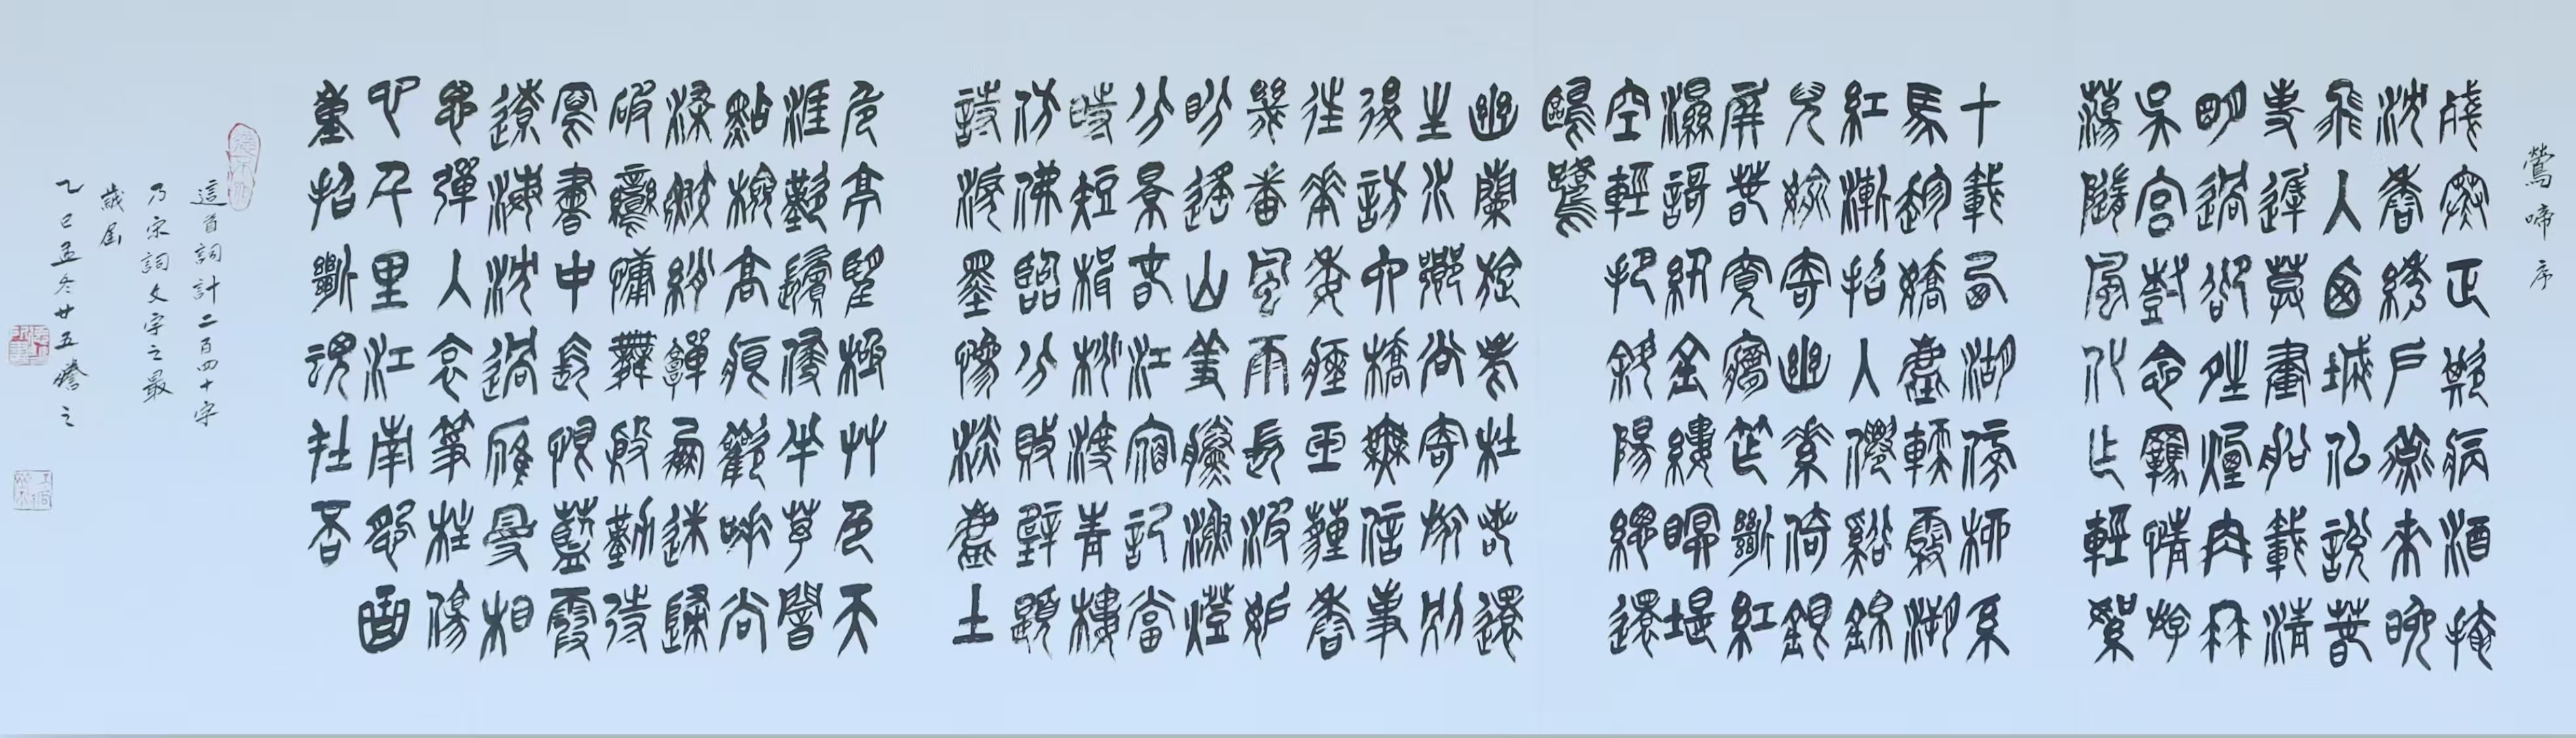 鶯啼序
殘寒正欺病酒掩
沈香繡戶燕來晚
飛入西城似說春
事遲暮畫船載清
明過卻晴煙冉冉
吳宮樹念羈情游
蕩隨風化為輕絮
十載西湖傍柳系
馬趁嬌塵軟霧溯
紅漸招入仙溪錦
兒偷寄幽素倚銀
屏春寬夢窄斷紅
濕歌紈金縷暝堤
空輕把斜陽總還
鷗鷺
幽蘭旋老杜若還
生水鄉尚寄旅別
後訪六橋無信事
往花委瘞玉埋香
幾番風雨長波妒
盼遙山羞黛漁燈
分影春江宿記當
時短楫桃渡青樓
仿佛臨分敗壁題
詩淚墨慘淡塵土
危亭望極草色天
涯歎鬢侵半苧暗
點檢離痕歡唾尚
染鮫綃嚲鳳迷歸
破鸞慵舞殷勤待
寫書中長恨藍霞
遼海沈過雁漫相
思彈入哀箏柱傷
心千里江南怨曲
重招斷魂在否
這首詞計二百四十字
乃宋詞文字之最
歲屆
乙巳孟冬廿五謄之